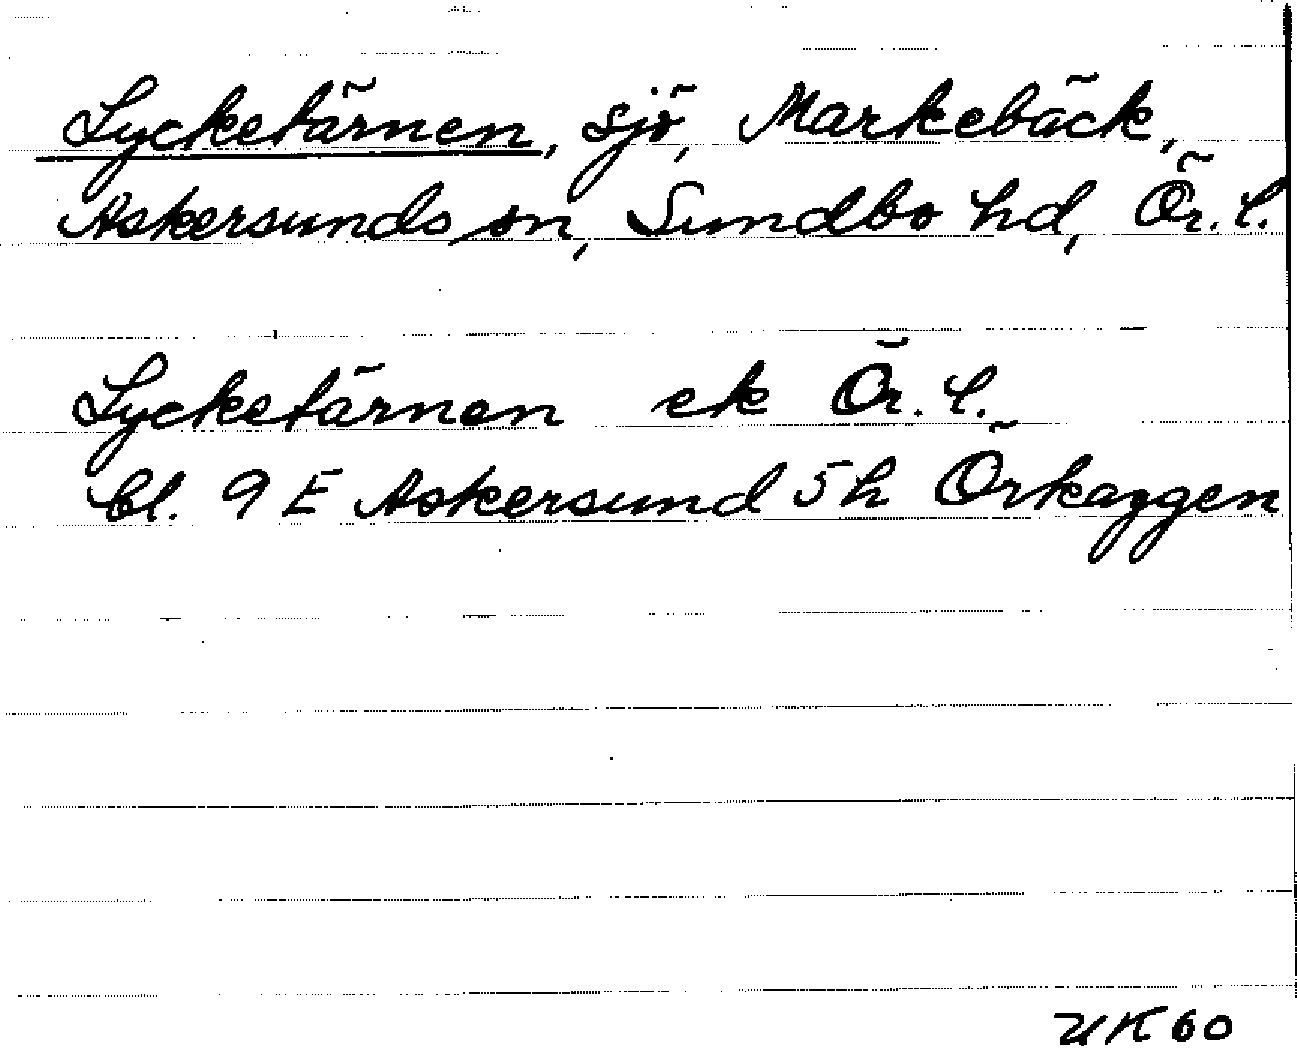 Lycketärnen, sjö, Markebäck,
Askersunds sn, Sundbo hd, Ör. l.
Lycketärnen ek Ör. l.
bl. 9 E Askersund 5 h Örkaggen
UK 60